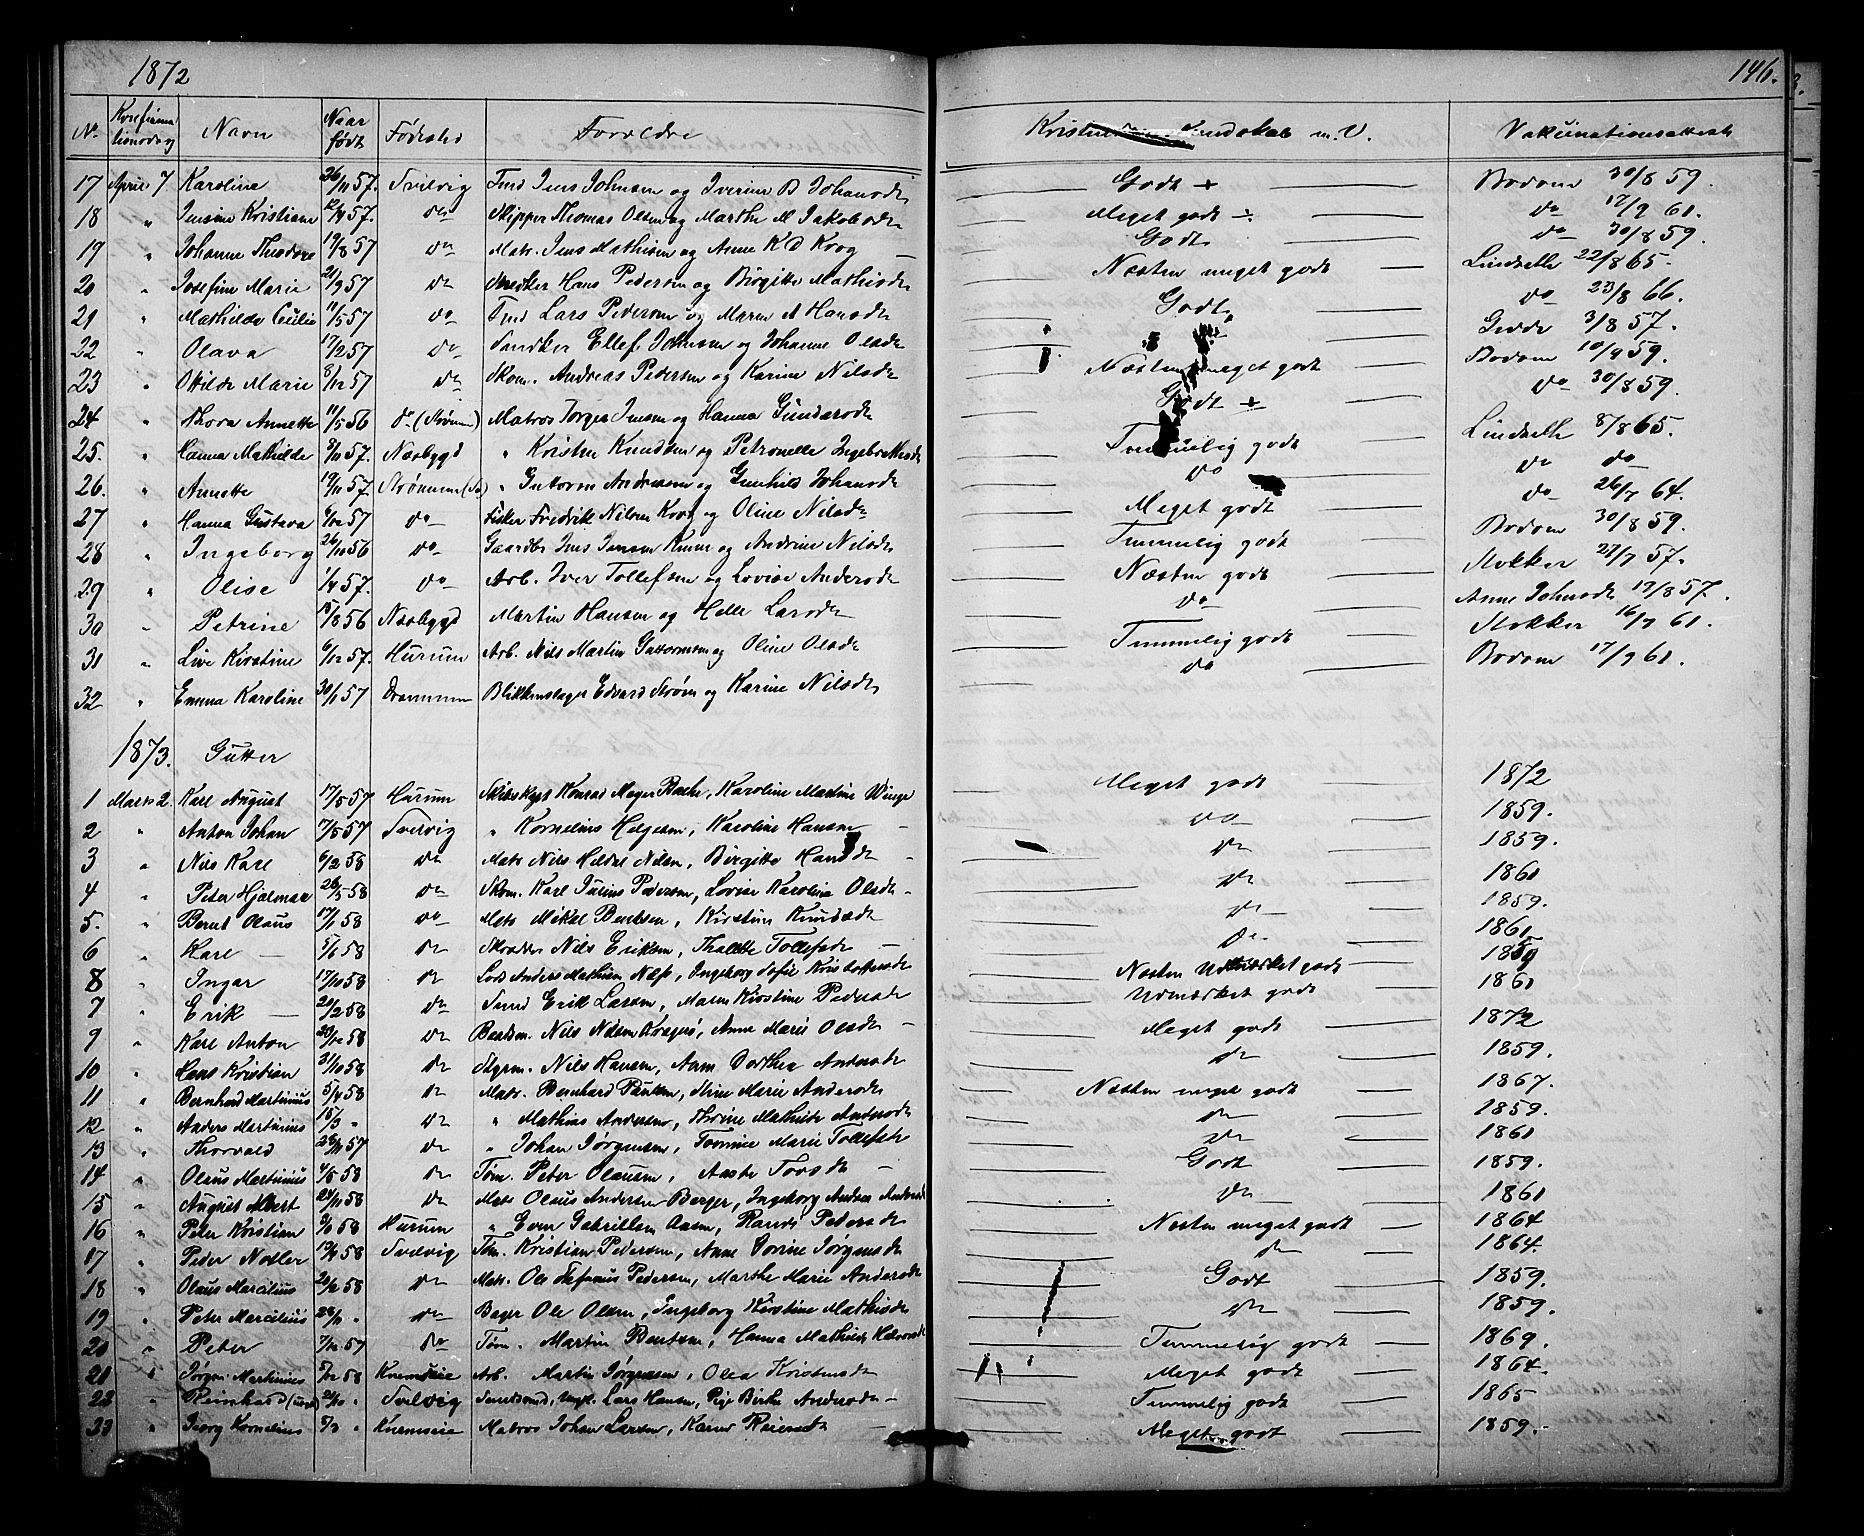 1872
146.
No Konfirmationsdag Navn Naar født Fødested Forældre Kristendoms Kundskab m.V. Vakcinationsattest
17 April 7. Karoline 26/11 57. Svelvig Jens Johnsen og Iverine B Johansdr Godt + Bodom 30/8 59.
18 " Jensine Kristiane 12/9 57. do Skipper Thomas Olsen og Marthe M Jakobsdr Meget godt ÷ do 17/9 61.
19 " Johanne Theodora 19/8 57 do Matr. Jens Mathisen og Anne K D Krog Godt do 30/8 59.
20 " Josefine Marie 21/9 57 do Snedker Hans Pedersen og Birgitte Mathisdr Næsten meget godt Lindseth 22/8 65.
21 " Mathilde Cecilie 11/5 57 do Lars Pedersen og Maren A Hansdr Godt do 23/8 66.
22 " Olava 17/2 57 do Ellef Johnsen og Johanne Olsdr Gedde 3/8 57.
23 " Otilde Marie 8/12 57 do Skom. Andreas Pedersen og Karine Nilsdr Næsten meget godt Bodom 10/9 59.
24 " Thora Annette 11/5 56 do Matros Jørgen Jensen og Hanna Gundersdr Godt + do 30/8 59.
25. " Hanna Mathilde 8/11 57. Næsbygd " Kristen Knudsen og Petronelle Ingebretsdr Temmelig godt Lindseth 8/8 65.
26. " Annette 19/11 57. " Guttorm Andersen og Gunhild Johansdr do do do
27 " Hanna Gustava 6/12 57 do Fisker Fredrik Nilsen Krog og Oline Nilsdr Meget godt do 26/7 64.
28 " Ingeborg 26/10 56 do Gaardbr Jens Jensen og Andrine Nilsdr Temmelig godt Bodom 30/8 59.
29 " Olise 1/4 57. do Arb. Iver Tollefsen og Lovise Andersdr Næsten godt Stokker 27/7 57.
30 " Petrine 15/8 56 Næsbygd Martin Hansen og Helle Larsdr do Anne Johnsdr 17/8 57.
31 " Live Kirstine 6/12 57. Hurum Arb. Nils Martin Guttormsen og Oline Olsdr Temmelig godt Stokker 16/9 61.
32 " Emma Karoline 30/11 57 Drammen Blikkenslager Edvard Strøm og Karine Nilsdr do Bodom 17/9 61.
1873. Gutter
1 Marts 2. Karl August 17/5 57 Hurum Konrad Meyer Bache, Karoline Martine Winge Meget godt 1872
2 " Anton Johan 17/5 57 Svelvig " Kornelius Helgesen, Karoline Hansen do 1859.
3 " Nils Karl 6/2 58 do Matr Nils Nilsen, Birgitte Hansdr do 1859.
4 " Peter Hjalmar 26/5 58 do Skom. Karl Julius Pedersen, Lovise Karoline Olsdr do 1860
5. " Bernt Olaus 17/1 58 do Matr Mikal Berntsen, Kirstine Knudsdr do 1859.
6 " Karl 5/6 58 do Skrædder Nils Eriksen, Thalette Tollefsdr do 1861
8 " Ingar 17/10 58 do Lods Anders Mathisen Næss, Ingeborg Sofie Kristoffersdr Næsten Udmærket godt 1859
7 " Erik 20/2 58 do Erik Larsen, Maren Kirstine Pedersdr Udmærket godt 1860
9 " Karl Anton 20/12 58 do Baatsm. Nils Nilsen Kragerø, Anne Marie Olsdr Meget godt 1872
10 " Hans Kristian 31/10 58 do Styrm. Nils Hansen, Anne Dorthea Andersdr do 1859.
11 " Bernhard Martinius 5/4 58 do Matr. Bernhard Paulsen, Anne Marie Andersdr Næsten meget godt 1867
12 " Anders Martinius 15/3 " do " Mathias Andersen, Thrine Mathilde Andersdr do 1859.
13 " Thorvald 28/11 57 do " Johan Jørgensen, Tomine Marie Tollefsdr do 1860
14 " Olaus Martinius 4/5 58 do Tøm. Peter Olausen, Aaste Torsdr Godt 1859.
15 " August Albert 24/11 58 do Matr Olaus Andersen Berger, Ingeborg Andrea Andersdr do 1861
16 " Peter Kristian 58 Hurum " Even Gabrielsen Aasen, Randi Pedersdr Næsten meget godt 1864
17 " Peder 19/9 58 Svelvig Tøm. Kristian Pedersen, Anne Dorine Jørgensdr do 1864.
18 " Olaus Marcilius 20/12 58 do Matr. Ole Stefanus Pedersen, Marthe Marie Andersdr Godt 1859.
19 " Peter Marcilius 28/11 " do Bager Ole Olsen, Ingeborg Kirstine Mathisdr do 1859.
20 " Peter 7/12 57 do Tøm. Martin Berntsen, Hanna Mathilde Halvorsdr Temmelig godt 1869.
21 " Jørgen Martinius 5/12 58 Knemseie Arb. Martin Jørgensen, Olea Kristensdr Meget godt 1864
22 " Reinhard 21/10 " Svelvig Lars Hansen, Pige Birthe Andersdr Temmelig godt 1865
23 " Georg Kornelius 5/3 " Knemseie Matros Johan Larsen, Karen Reiersdr Meget godt 1859.